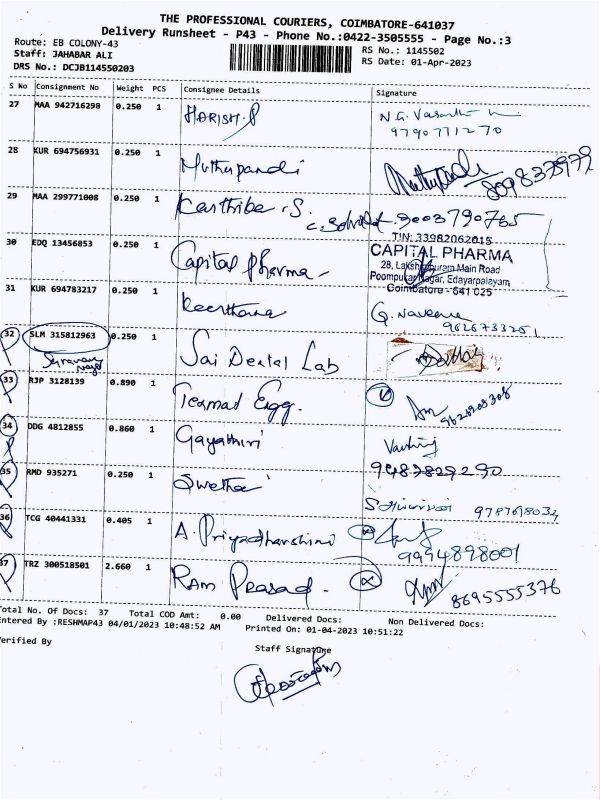 THE PROFESSIONAL COURIERS, COIMBATORE-641037
Delivery Runsheet - P43 - Phone No.:0422-3505555 - Page No.:3
Route: EB COLONY-43
RS No.: 1145502
Staff: JAHABAR ALI
RS Date: 01-Apr-2023
DRS No.: DCJB114550203
S No Consignment No Weight PCS Consignee Details Signature
27 MAA 942716298 0.250 1 HARISH.P N.G. Vasanth
9790771270
28 KUR 694756931 0.250 1 Muthupandi
29 MAA 299771008 0.250 1 Karthika .S. 9003790765
TIN: 33982062015
30 EDQ 13456853 0.250 1 Capital Pharma - CAPITAL PHARMA
28, Lakshmipuram Main Road
Poompukar Nagar, Edayarpalayam,
Coimbatore - 641 025
31 KUR 694783217 0.250 1 Keerthana G. Naveena
9626733251
32 SLM 315812963 0.250 1 Sai Dental Lab
33 RJP 3128139 0.890 1 Texmat Engg.
34 DDG 4812855 0.860 1 Gayathiri
9483829290
35 RMD 935271 0.250 1 Swetha
36 TCG 40441331 0.405 1 A. Priyadharshini
9994898001
37 TRZ 300518501 2.660 1 Ram Prasad.
8695555376
Total No. Of Docs: 37 Total COD Amt: 0.00 Delivered Docs: Non Delivered Docs:
Entered By :RESHMAP43 04/01/2023 10:48:52 AM Printed On: 01-04-2023 10:51:22
Verified By
Staff Signature